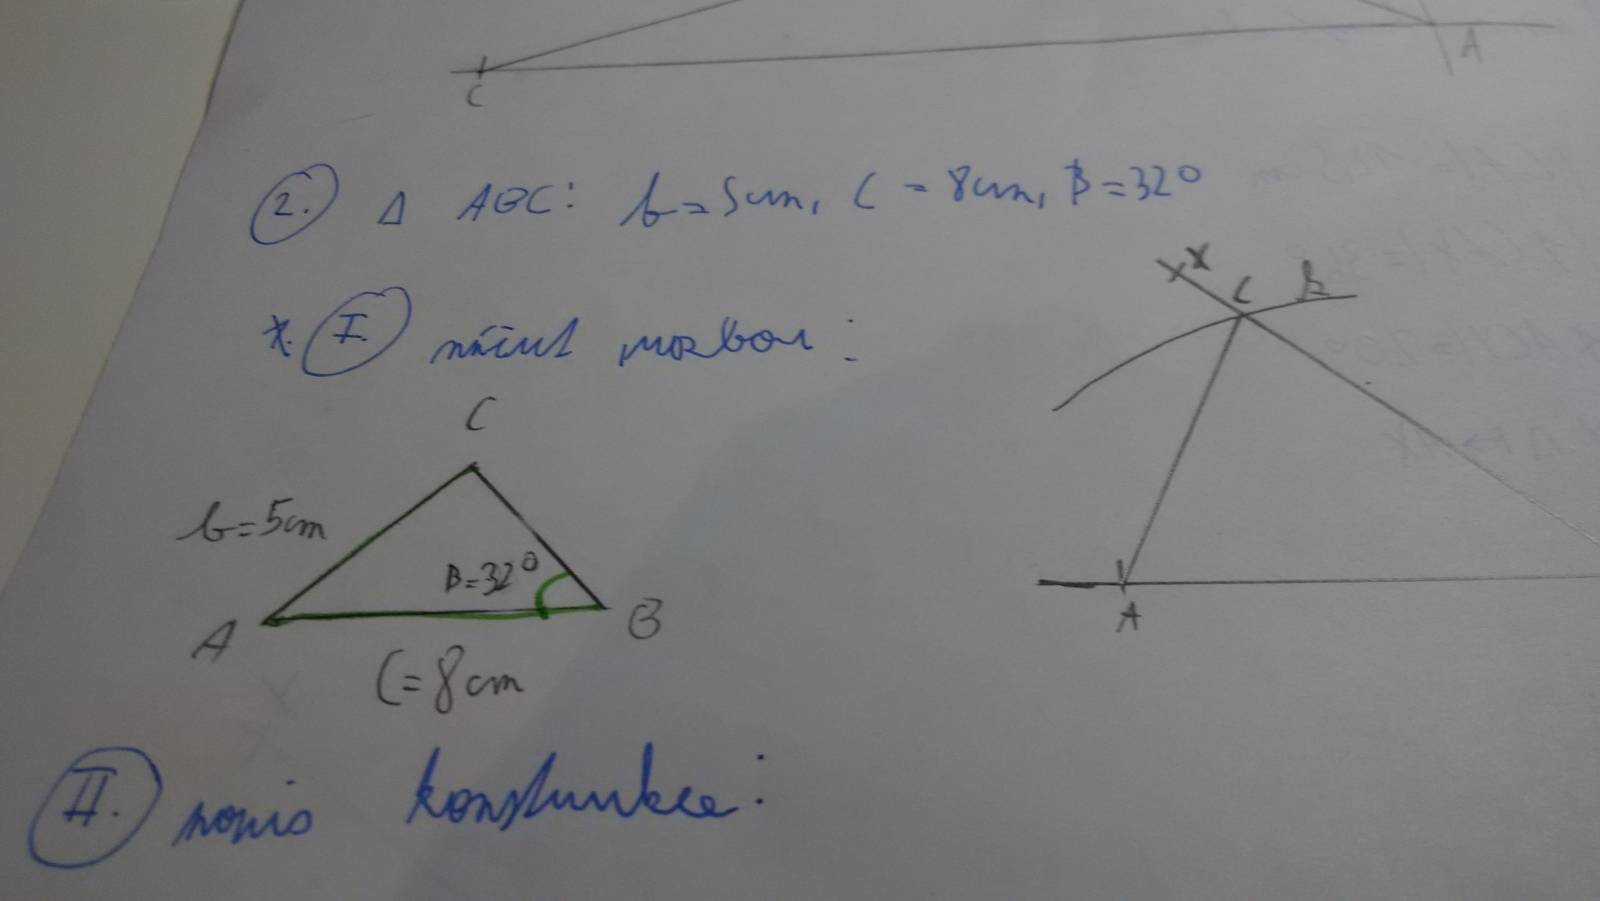 C
A
2. Δ ABC: b=5cm, C = 8cm, β=32°
*. I. náčrt rozbor:
X
C
k
C
b=5cm
β=32°
A
B
A
C=8cm
II. popis konstrukce: